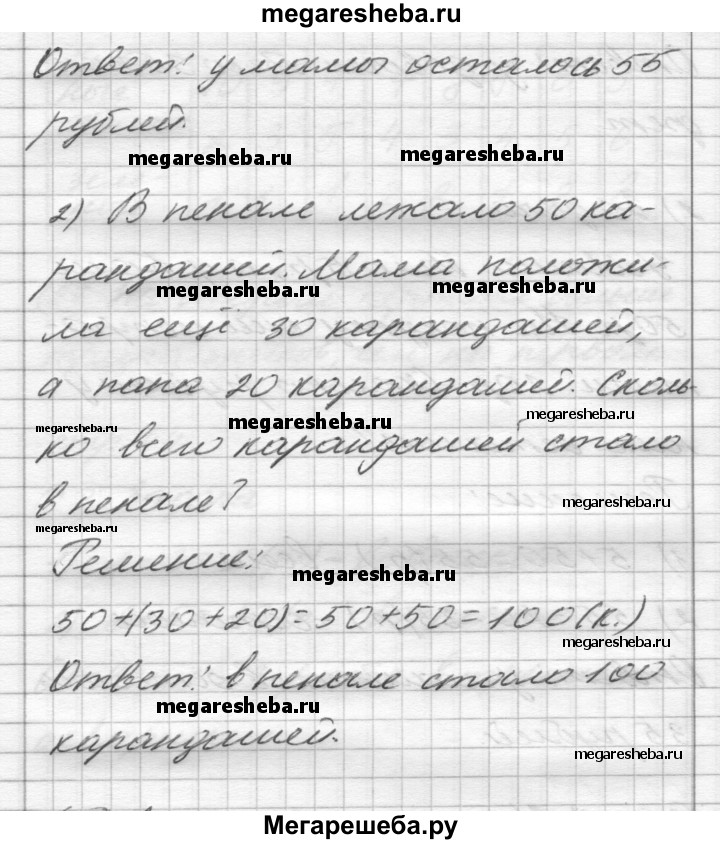 megaresheba.ru
Ответ: у мамы осталось 55
рублей.
megaresheba.ru megaresheba.ru
2) В пенале лежало 50 ка-
рандашей. Мама положи-
megaresheba.ru megaresheba.ru
ла ещё 30 карандашей,
а папа 20 карандашей. Сколь-
megaresheba.ru megaresheba.ru megaresheba.ru
ко всего карандашей стало
в пенале?
megaresheba.ru
megaresheba.ru
Решение:
megaresheba.ru
50+(30+20)=50+50=100(к.)
megaresheba.ru
Ответ: в пенале стало 100
megaresheba.ru
карандашей.
megaresheba.ru
Мегарешеба.ру